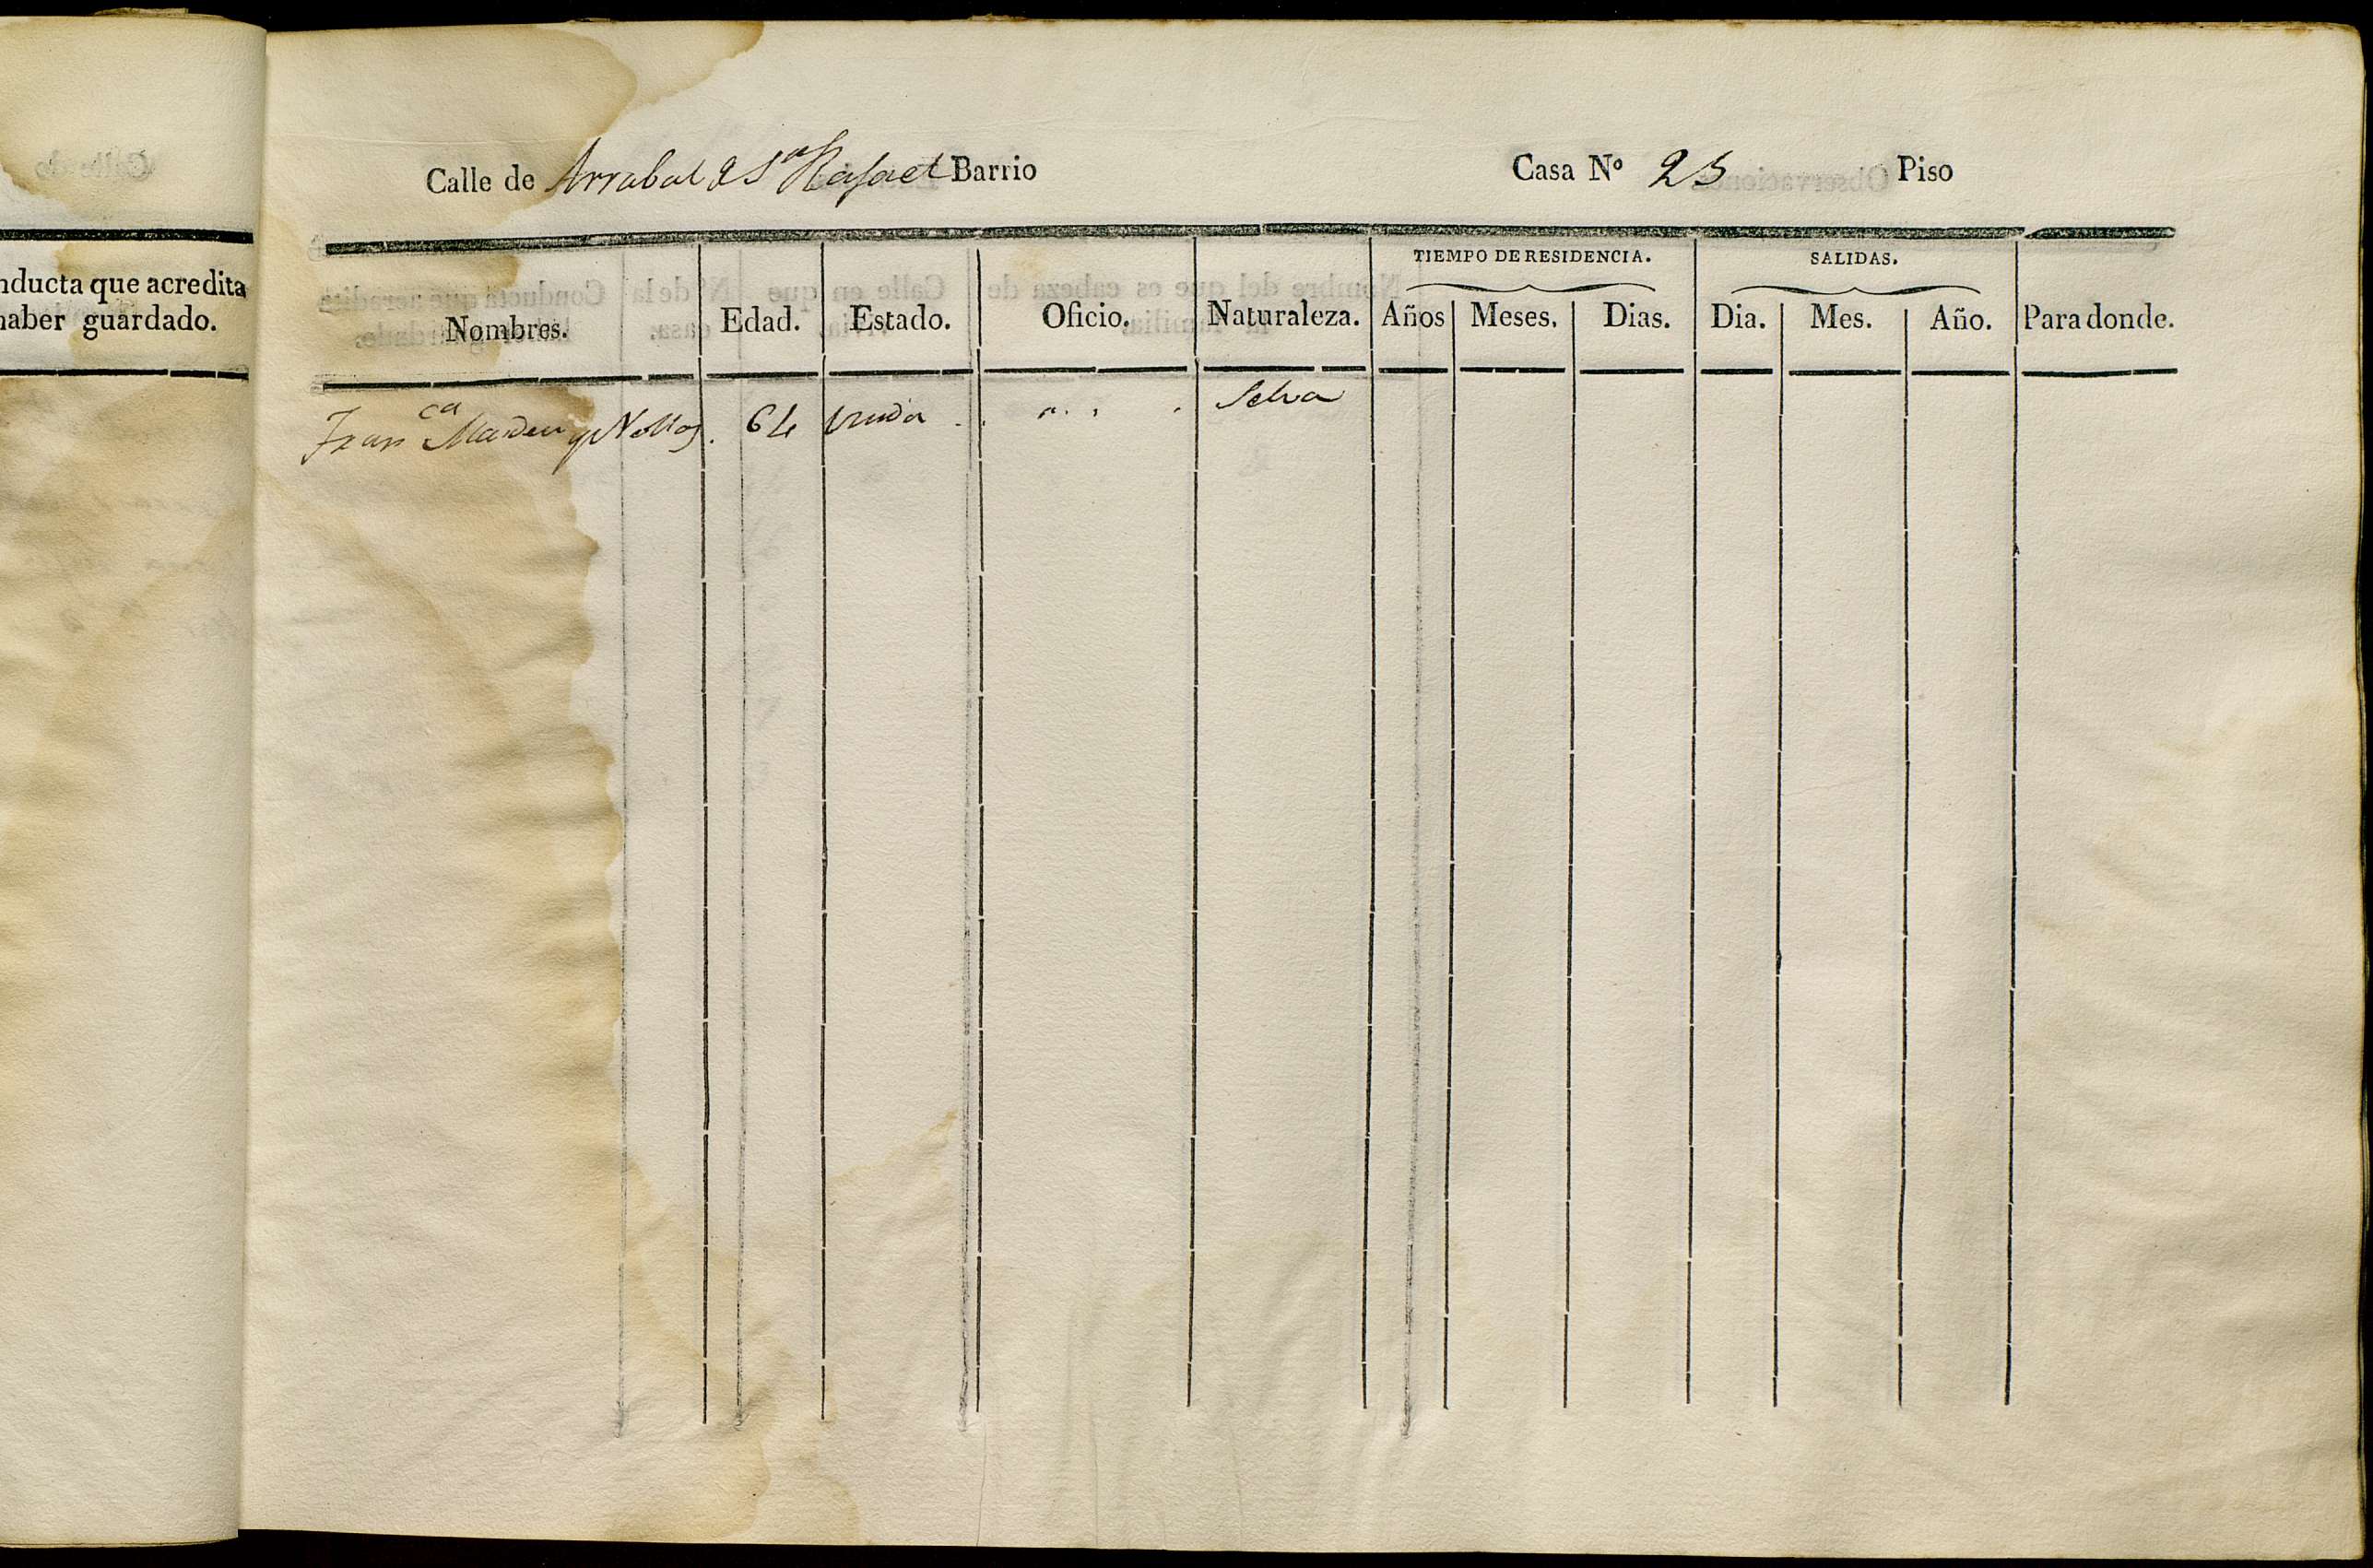 nducta que acredita
haber guardado.
Calle de Arrabal de Sn Rafael Barrio Casa Nº 25 Piso
TIEMPO DE RESIDENCIA. SALIDAS.
Nombres. Edad. Estado. Oficio. Naturaleza. Años Meses. Dias. Dia. Mes. Año. Para donde.
Franca y 64 Viuda Selva